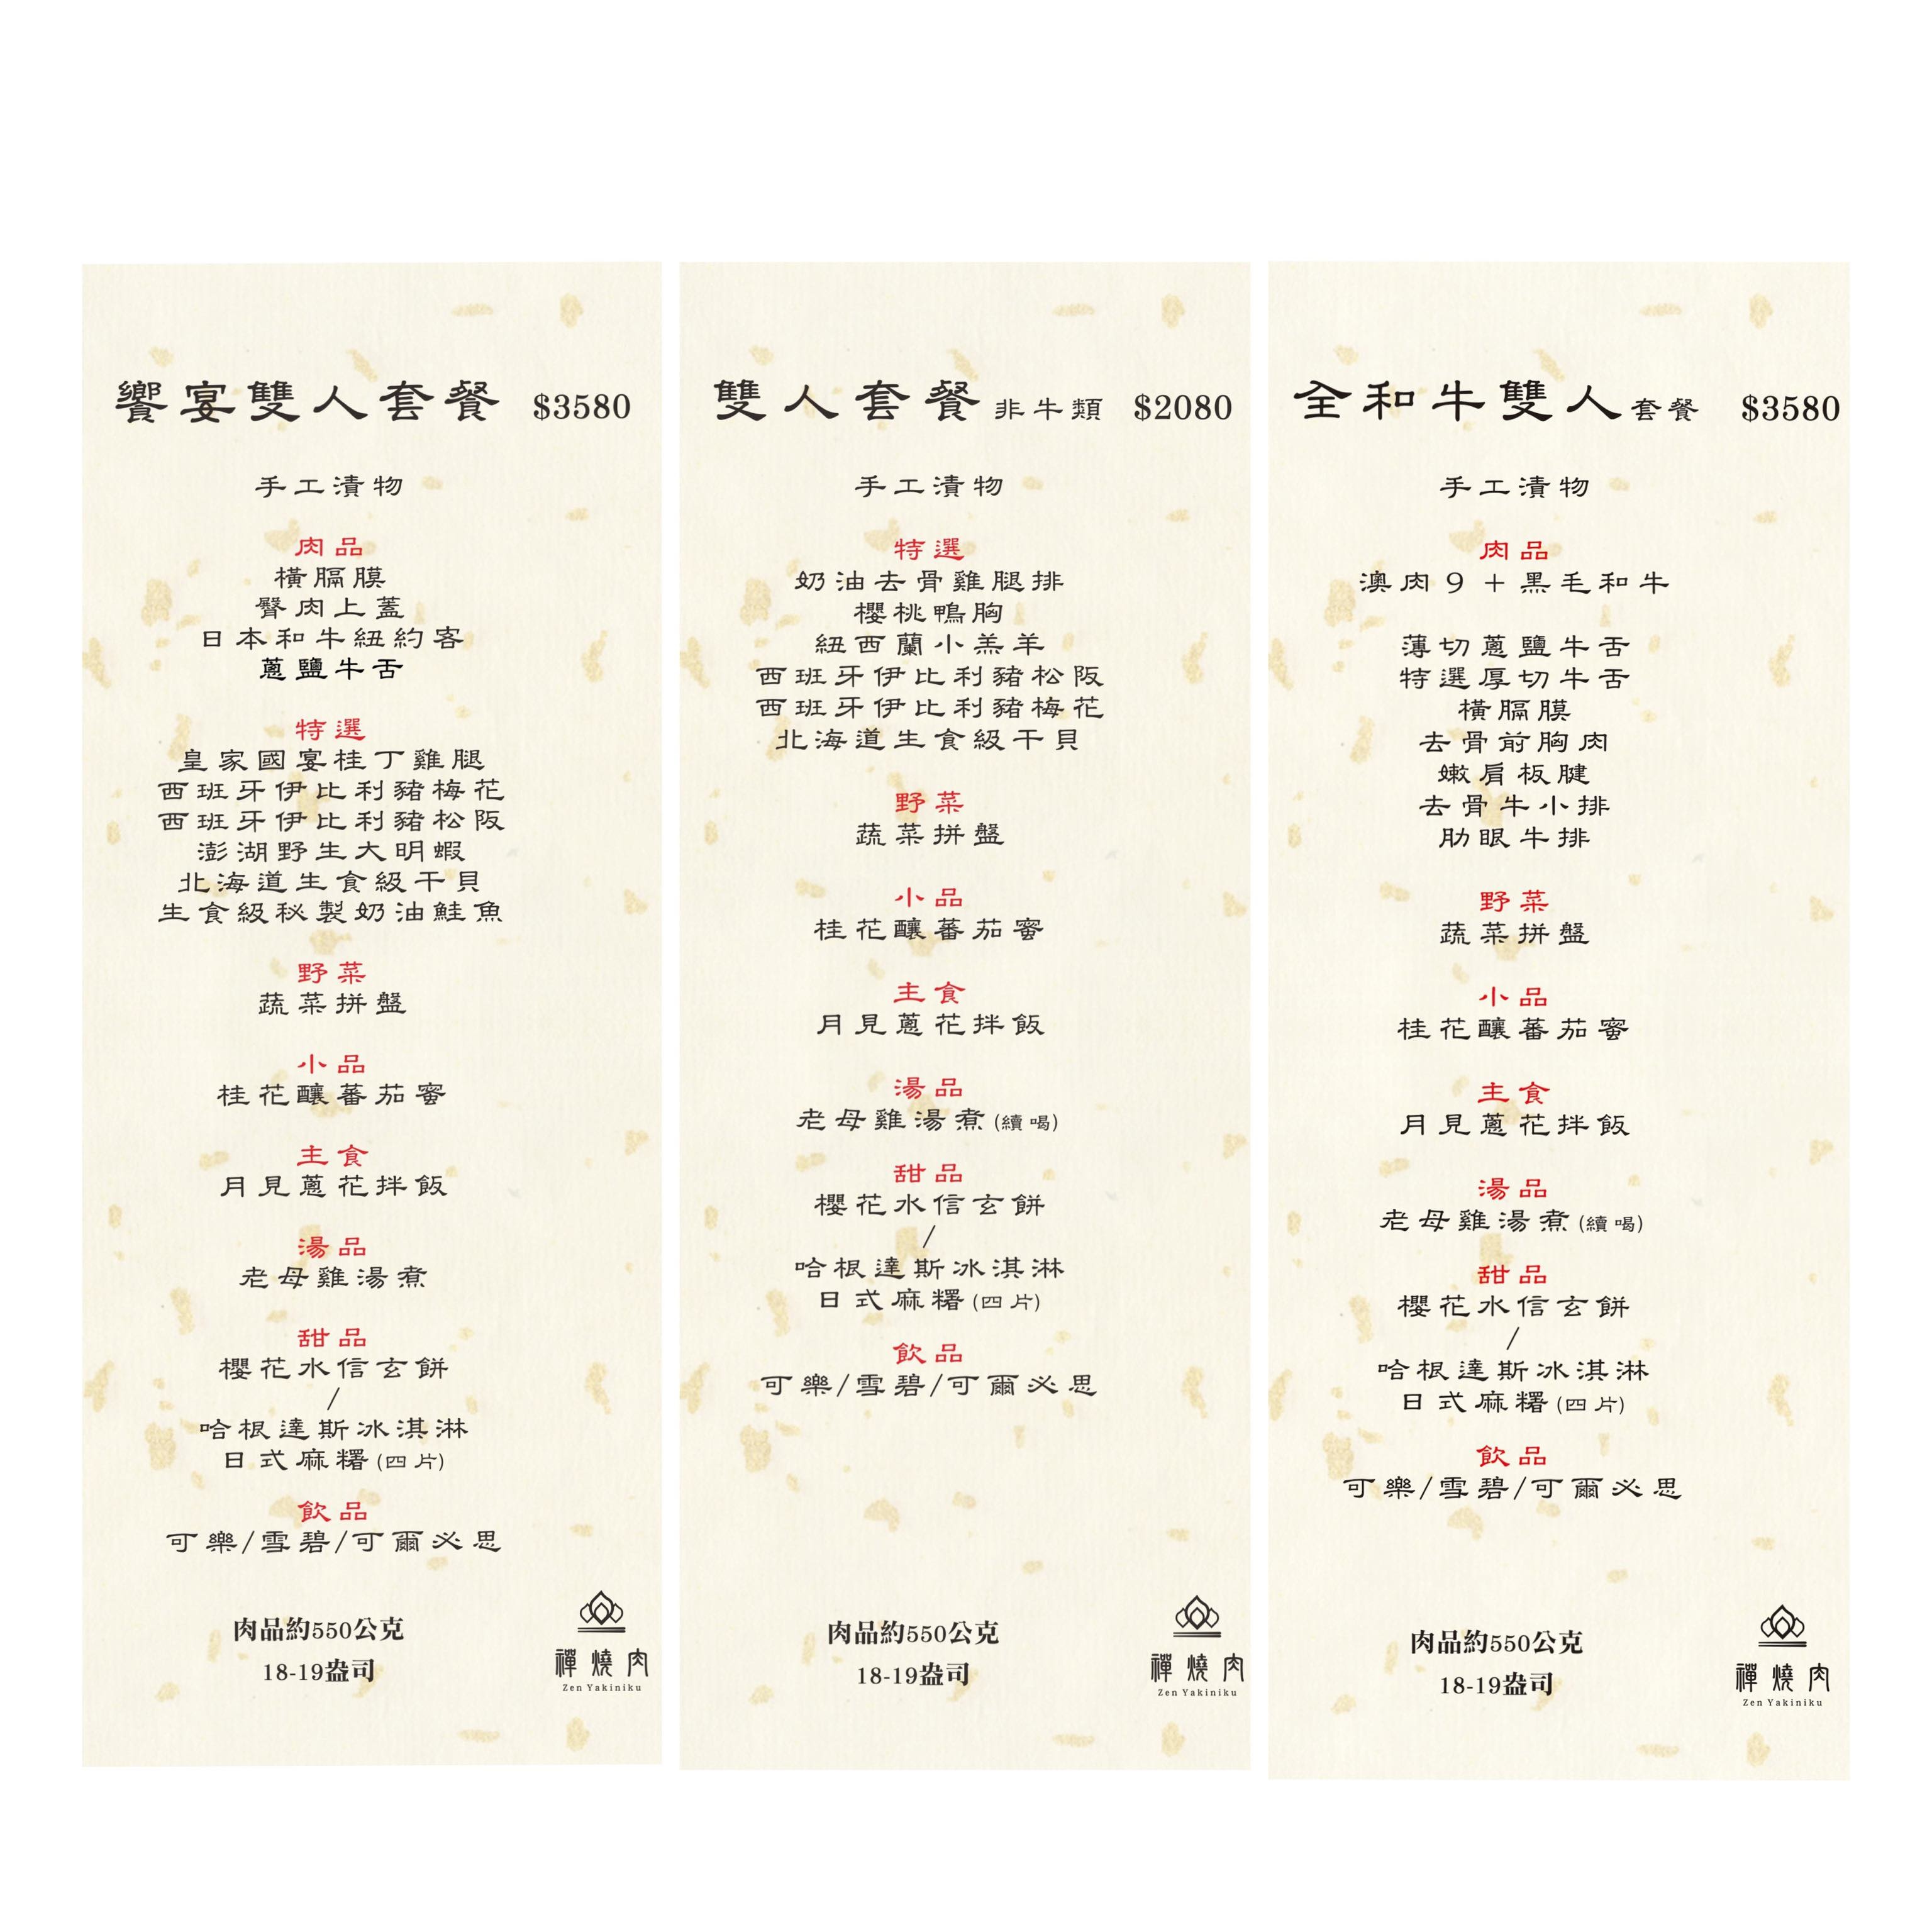 饗宴雙人套餐 $3580
手工漬物
肉品
橫膈膜
臀肉上蓋
日本和牛紐約客
蔥鹽牛舌
特選
皇家國宴桂丁雞腿
西班牙伊比利豬梅花
西班牙伊比利豬松阪
澎湖野生大明蝦
北海道生食級干貝
生食級秘製奶油鮭魚
野菜
蔬菜拼盤
小品
桂花釀蕃茄蜜
主食
月見蔥花拌飯
湯品
老母雞湯煮
甜品
櫻花水信玄餅
/
哈根達斯冰淇淋
日式麻糬(四片)
飲品
可樂/雪碧/可爾必思
肉品約550公克
18-19盎司
禪燒肉
Zen Yakiniku
雙人套餐 非牛類 $2080
手工漬物
特選
奶油去骨雞腿排
櫻桃鴨胸
紐西蘭小羔羊
西班牙伊比利豬松阪
西班牙伊比利豬梅花
北海道生食級干貝
野菜
蔬菜拼盤
小品
桂花釀蕃茄蜜
主食
月見蔥花拌飯
湯品
老母雞湯煮(續喝)
甜品
櫻花水信玄餅
/
哈根達斯冰淇淋
日式麻糬(四片)
飲品
可樂/雪碧/可爾必思
肉品約550公克
18-19盎司
禪燒肉
Zen Yakiniku
全和牛雙人套餐 $3580
手工漬物
肉品
澳肉9+黑毛和牛
薄切蔥鹽牛舌
特選厚切牛舌
橫膈膜
去骨前胸肉
嫩肩板腱
去骨牛小排
肋眼牛排
野菜
蔬菜拼盤
小品
桂花釀蕃茄蜜
主食
月見蔥花拌飯
湯品
老母雞湯煮(續喝)
甜品
櫻花水信玄餅
/
哈根達斯冰淇淋
日式麻糬(四片)
飲品
可樂/雪碧/可爾必思
肉品約550公克
18-19盎司
禪燒肉
Zen Yakiniku